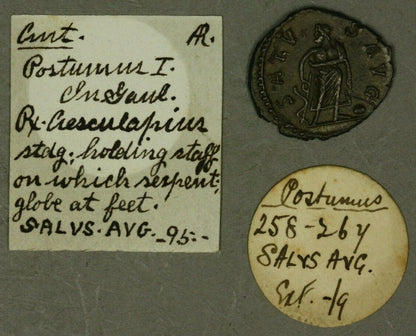 Ant. AR.
Postumus I.
In Gaul.
Rx. Aesculapius
stdg. holding staff
on which serpent,
globe at feet.
SALVS. AVG. -95.-
SALVS AVG
Postumus
258-267
SALVS AVG.